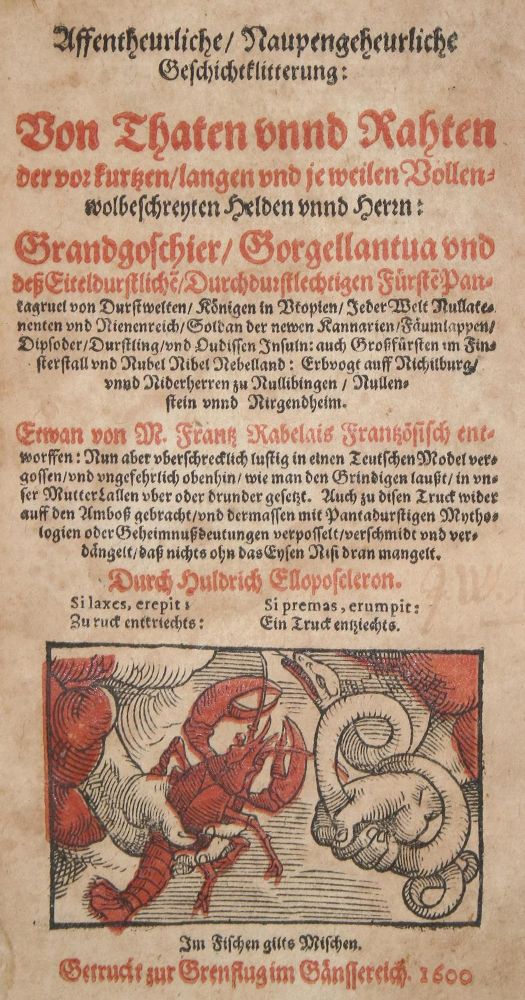 Affentheurliche/ Naupengeheurliche
Geschichtklitterung:
Von Thaten vnnd Rahten
der vor kurtzen/langen vnd je weilen Vollen-
wolbeschreyten Helden vnnd Herrn:
Grandgoschier/ Gorgellantua vnd
deß Eiteldurstlichē/Durchdurstlechtigen Fürstē Pan-
tagruel von Durstwelten/ Königen in Vtopien/ Jeder Welt Nullate-
nenten vnd Nienenreich/ Soldan der newen Kannarien/Fäumlappen/
Dipsoder/Durstling/vnd Oudissen Insuln: auch Großfürsten im Fin-
sterstall vnd Nubel Nibel Nebelland: Erbvogt auff Nichilburg/
vnnd Niderherren zu Nullibingen / Nullen-
stein vnnd Nirgendheim.
Etwan von M. Frantz Rabelais Frantzösisch ent-
worffen: Nun aber vberschrecklich lustig in einen Teutschen Model ver-
gossen/vnd vngefehrlich obenhin/ wie man den Grindigen laußt/ in vn-
ser MutterLallen vber oder drunder gesetzt. Auch zu disen Truck wider
auff den Amboß gebracht/vnd dermassen mit Pantadurstigen Mytho-
logien oder Geheimnußdeutungen verposselt/verschmidt vnd ver-
dängelt/daß nichts ohn das Eysen Nisi dran mangelt.
Durch Huldrich Elloposcleron.
Si laxes, erepit: Si premas, erumpit:
Zu ruck entkriechts: Ein Truck entziechts.
Im Fischen gilts Mischen.
Getruckt zur Grenflug im Gänssereich. 1600